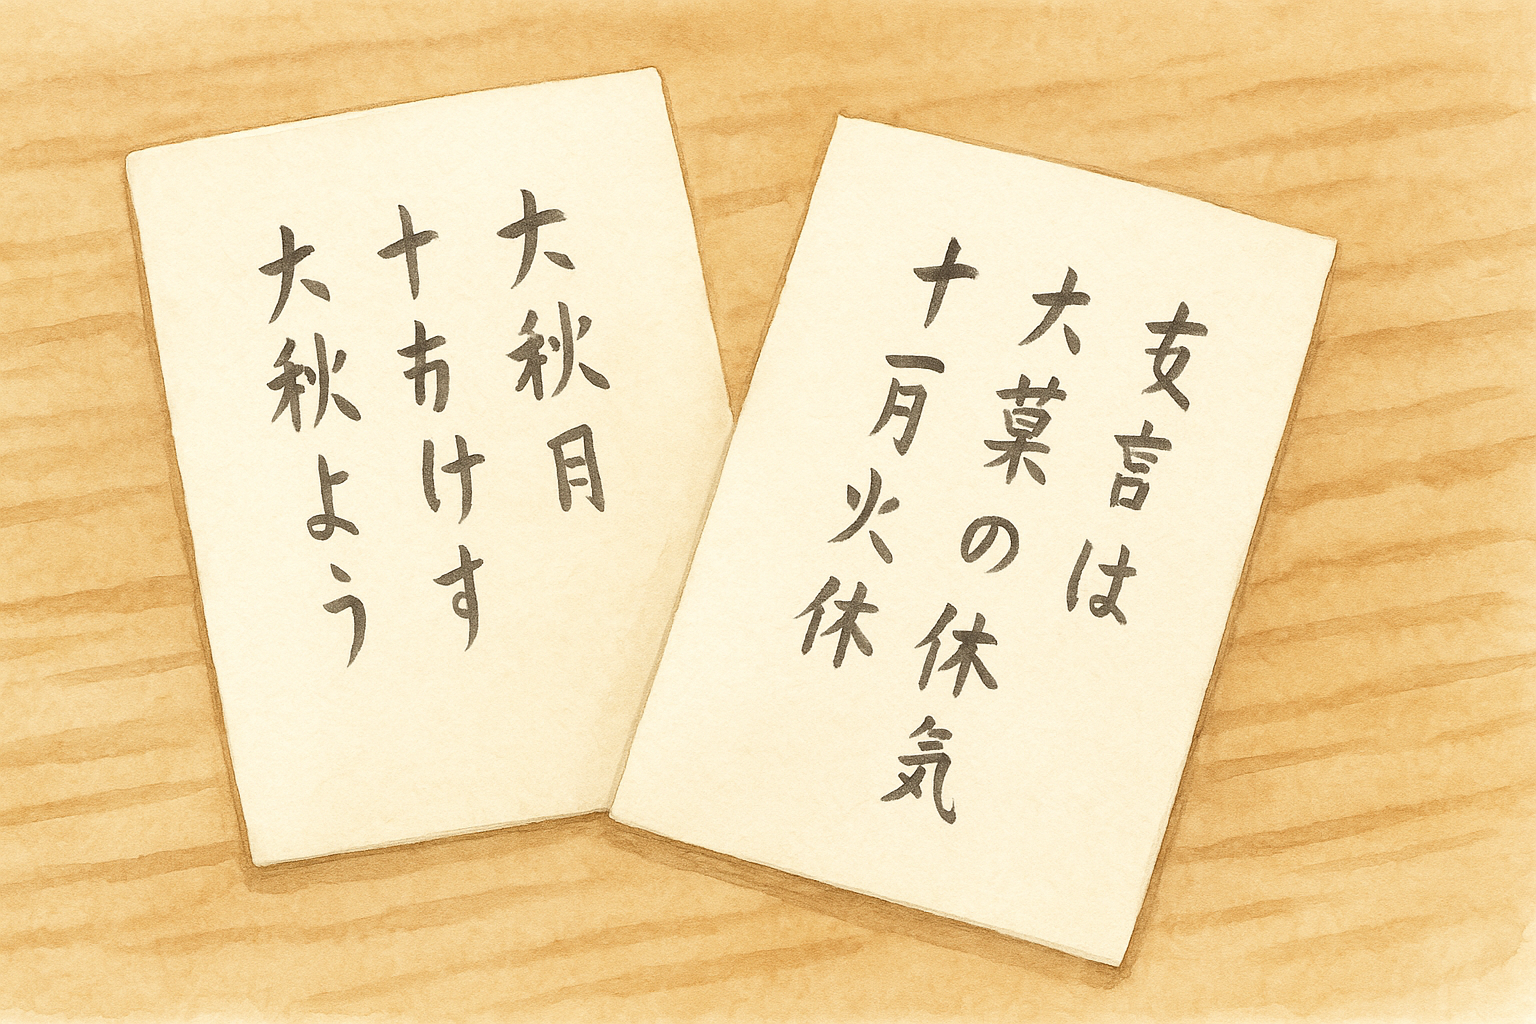 大秋月
十おけす
大秋よう
友言は
大菓の休気
十一月火休